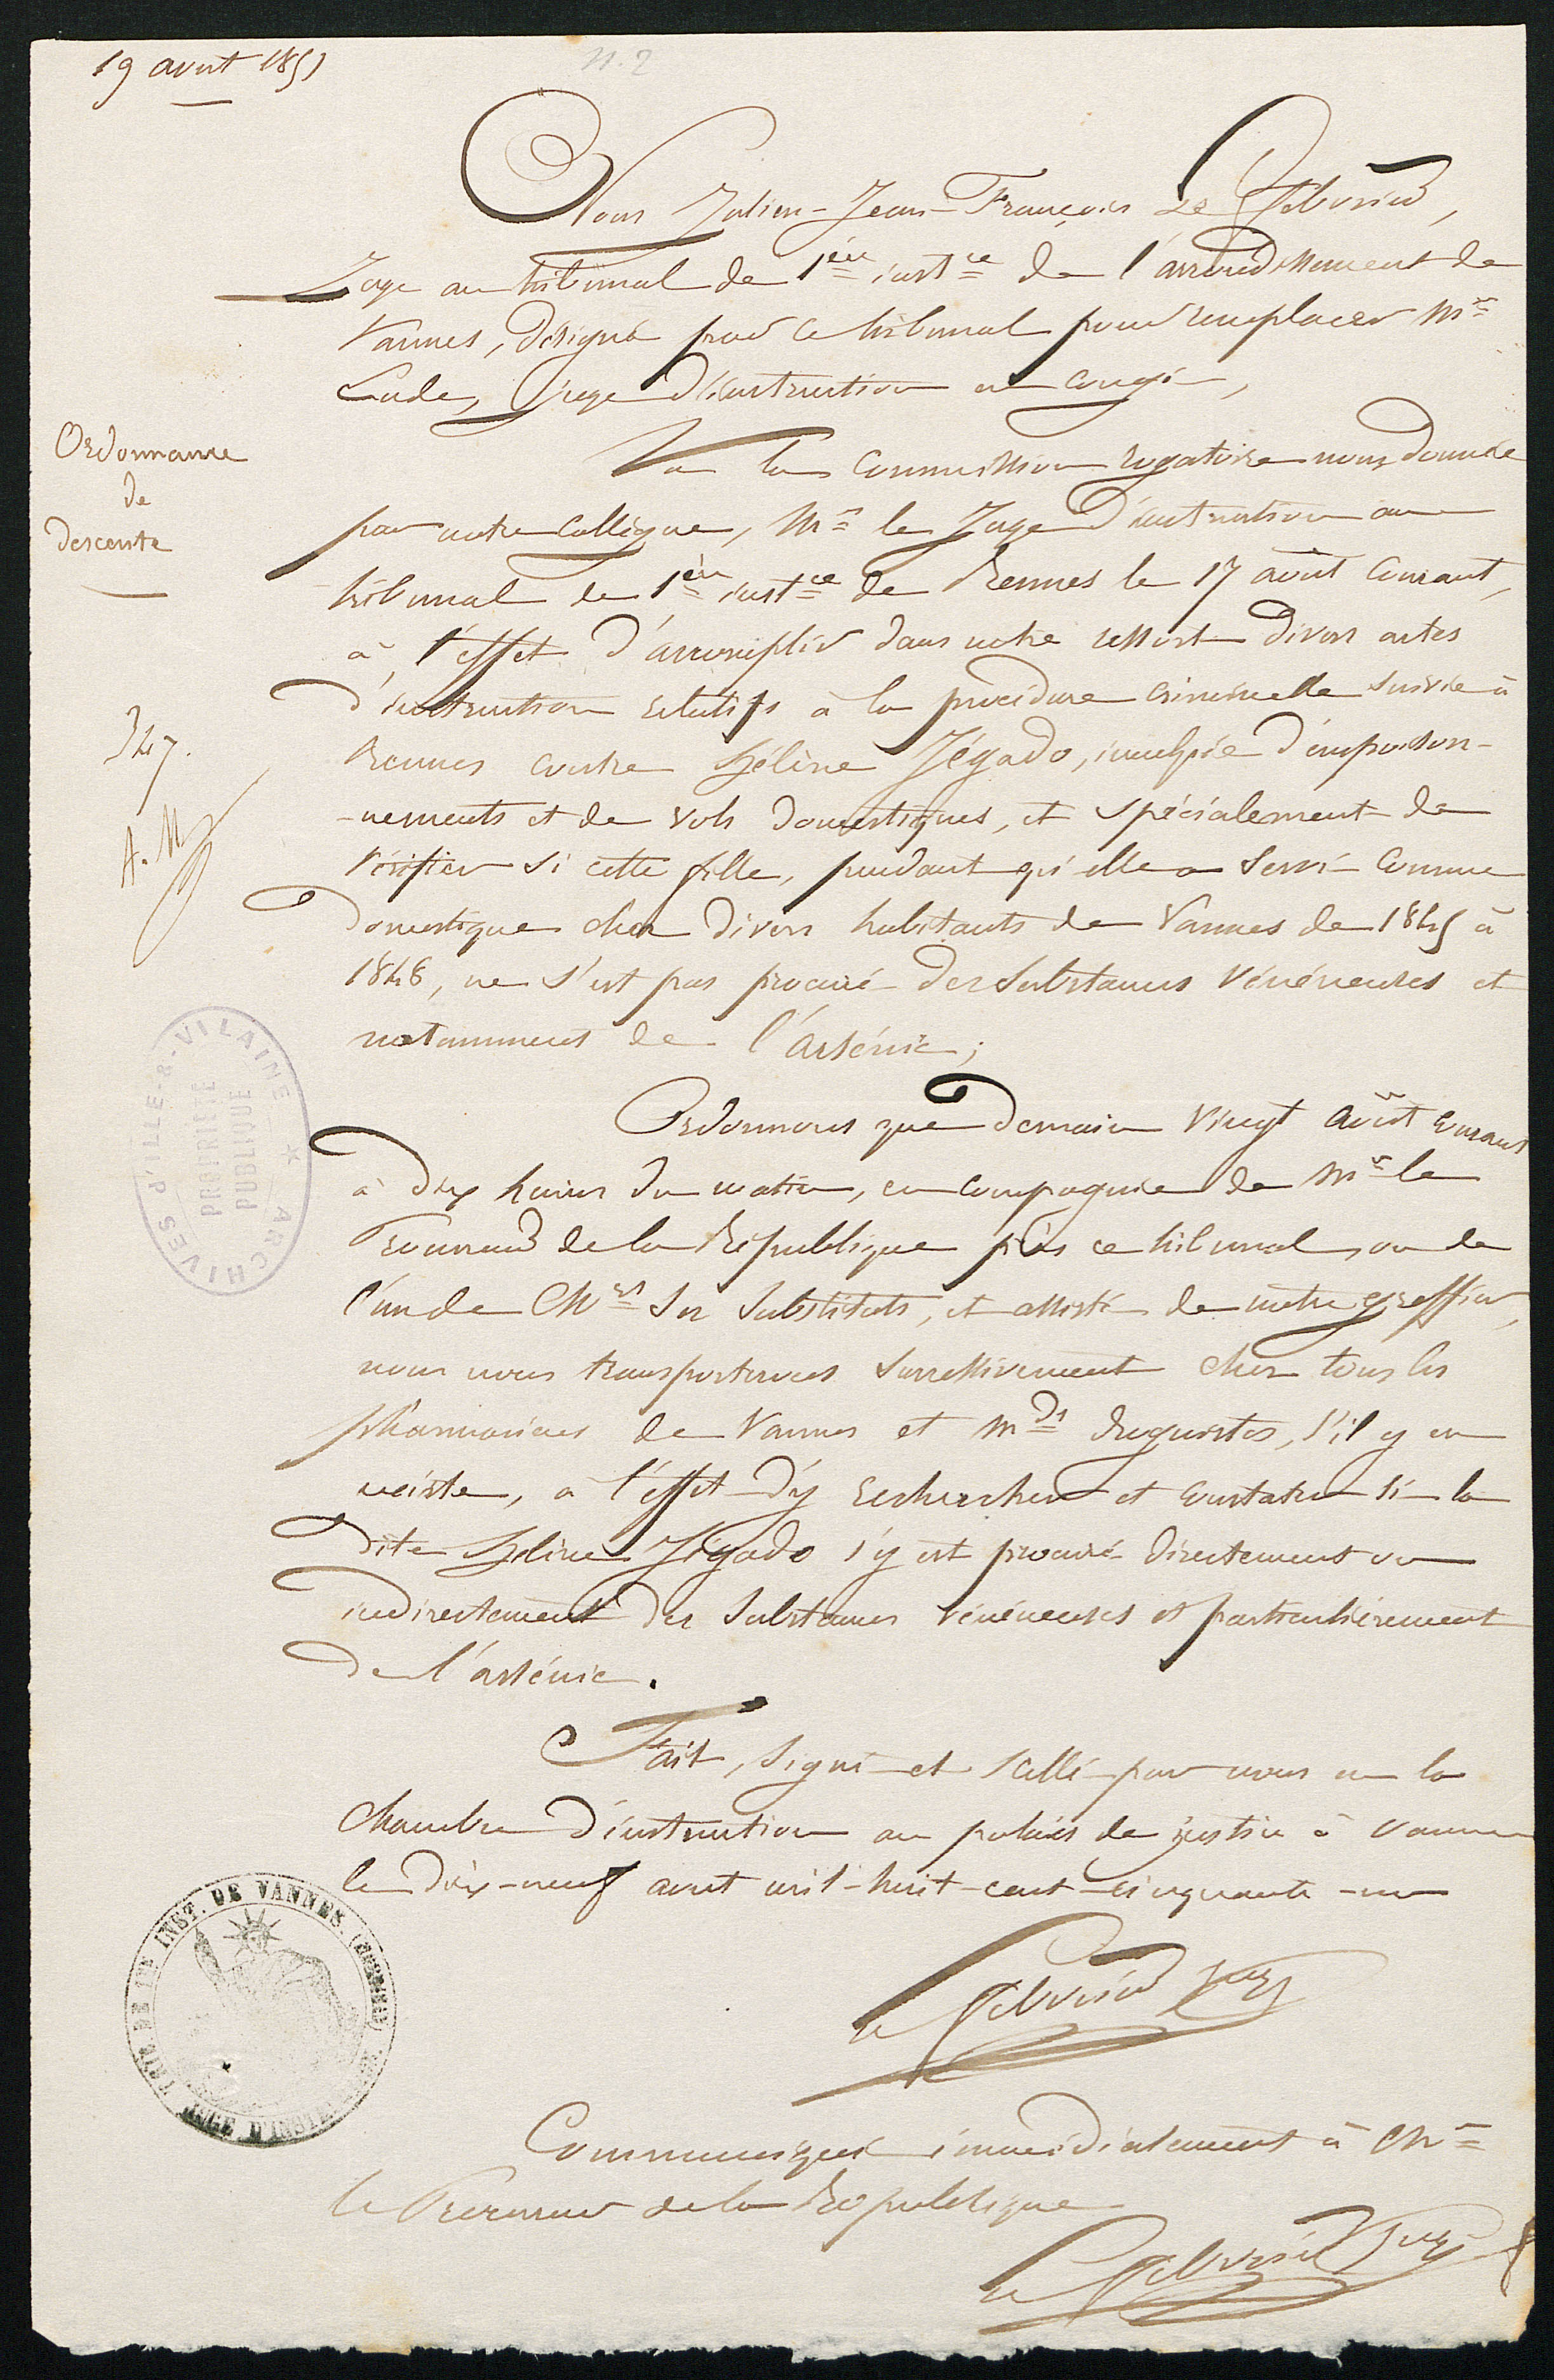 19 aout 1851
n. 2
Nous Julien-Jean-François Le Febvrier,
Juge au tribunal de 1ère instce de l'arrondissement de
Vannes, désigné par ce tribunal pour remplacer Mr
Lude, juge d'instruction en congé,
Ordonnance
de
descente
Vu la commission rogatoire nous donnée
par notre collègue, Mr le Juge d'instruction au
tribunal de 1ère instce de Rennes le 17 août courant,
à l'effet d'accomplir dans notre ressort divers actes
d'instruction relatifs à la procédure criminelle suivie à
Rennes contre Hélène Jégado, inculpée d'empoison-
-nements et de vols domestiques, et spécialement de
vérifier si cette fille, pendant qu'elle a servi comme
domestique chez divers habitants de Vannes de 1845 à
1848, ne s'est pas procuré des substances vénéneuses et
notamment de l'arsénic;
347.
A. M
Ordonnons que demain vingt août courant
à dix heures du matin, en compagnie de Mr le
Procureur de la République près ce tribunal, ou de
l'un de Mrs ses substituts, et assisté de notre greffier,
nous nous transporterons successivement chez tous les
pharmaciens de Vannes et mds droguistes, s'il y en
existe, à l'effet d'y rechercher et constater si la
dite Hélène Jégado s'y est procuré directement ou
indirectement des substances vénéneuses et particulièrement
de l'arsénic.
Fait, signé et scellé par nous en la
chambre d'instruction au palais de justice à Vannes
le dix-neuf aout mil-huit-cent-cinquante-un
Le Febvrier
Communiqué immédiatement à Mr
le Procureur de la République
Le Febvrier
ARCHIVES D'ILLE-&-VILAINE
PROPRIÉTÉ
PUBLIQUE
TRIB. DE 1RE INST. DE VANNES.
JUGE D'INSTR